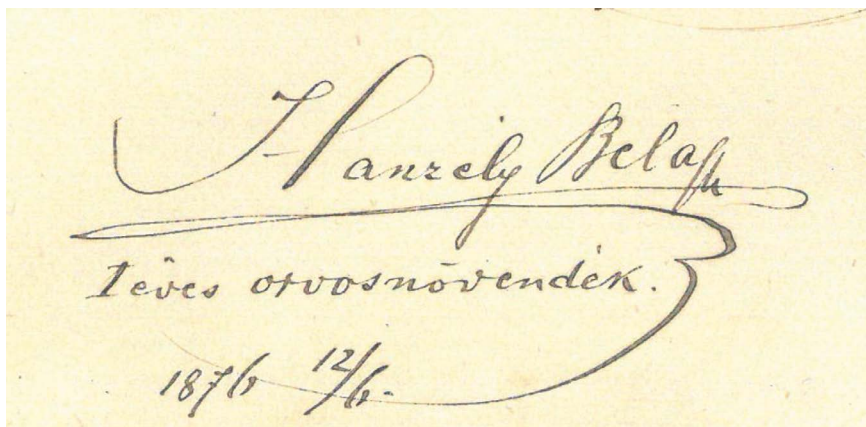 Hanzély Béla
I éves orvosnövendék.
1876 12/6.